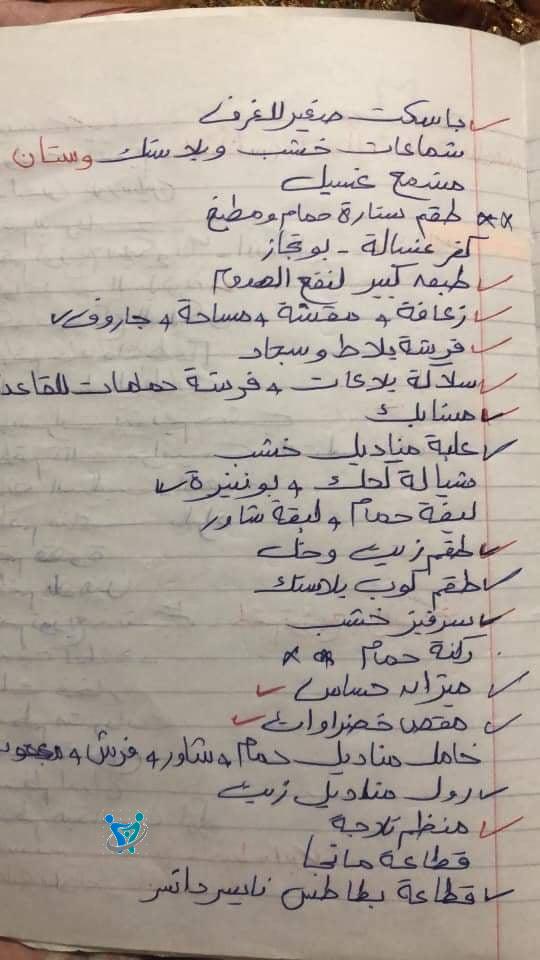 باسكت صغير للغرف
شماعات خشب وبلاستك وستان
مشمع غسيل
طقم ستارة حمام ومطبخ
كفر غسالة - بوتجاز
طبق كبير لنقع الهدوم
زعافة + مقشة + مساحة + جاروف
فرشة بلاط وسجاد
سلالة بلاعات + فرشة حمامات للقاعدة
مشابك
علبة مناديل خشب
شيالة + بونبنيرة
ليفة حمام + ليفة شاور
طقم زيت وخل
طقم كوب بلاستك
سرفيز خشب
ركنة حمام
ميزان حساس
مقص خضراوات
حامل مناديل حمام + شاور + فرش +
رول مناديل زيت
منظم تلاجة
قطاعة مانجا
قطاعة بطاطس نايسر دايسر